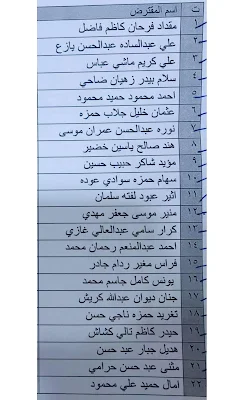 ت اسم المقترض
١ مقداد فرحان كاظم فاضل
٢ علي عبدالساده عبدالحسن يازع
٣ علي كريم ماشي عباس
٤ سلام بيدر زهيان ضاحي
٥ احمد محمود حميد محمود
٦ عثمان خليل جلاب حمزه
٧ نوره عبدالحسن عمران موسى
٨ هند صالح ياسين خضير
٩ مؤيد شاكر حبيب حسين
١٠ سهام حمزه سوادي عوده
١١ اثير عبود لفته سلمان
١٢ منير موسى جعفر مهدي
١٣ كرار سامي عبدالعالي غازي
١٤ احمد عبدالمنعم رحمان محمد
١٥ فراس مغير ردام جادر
١٦ يونس كامل جاسم محمد
١٧ جنان ديوان عبدالله كريش
١٨ تغريد حمزه ناجي حسن
١٩ حيدر كاظم تالي كشاش
٢٠ هديل جبار عبد حسن
٢١ مثنى عبد حسن حرامي
٢٢ امال حميد علي محمود